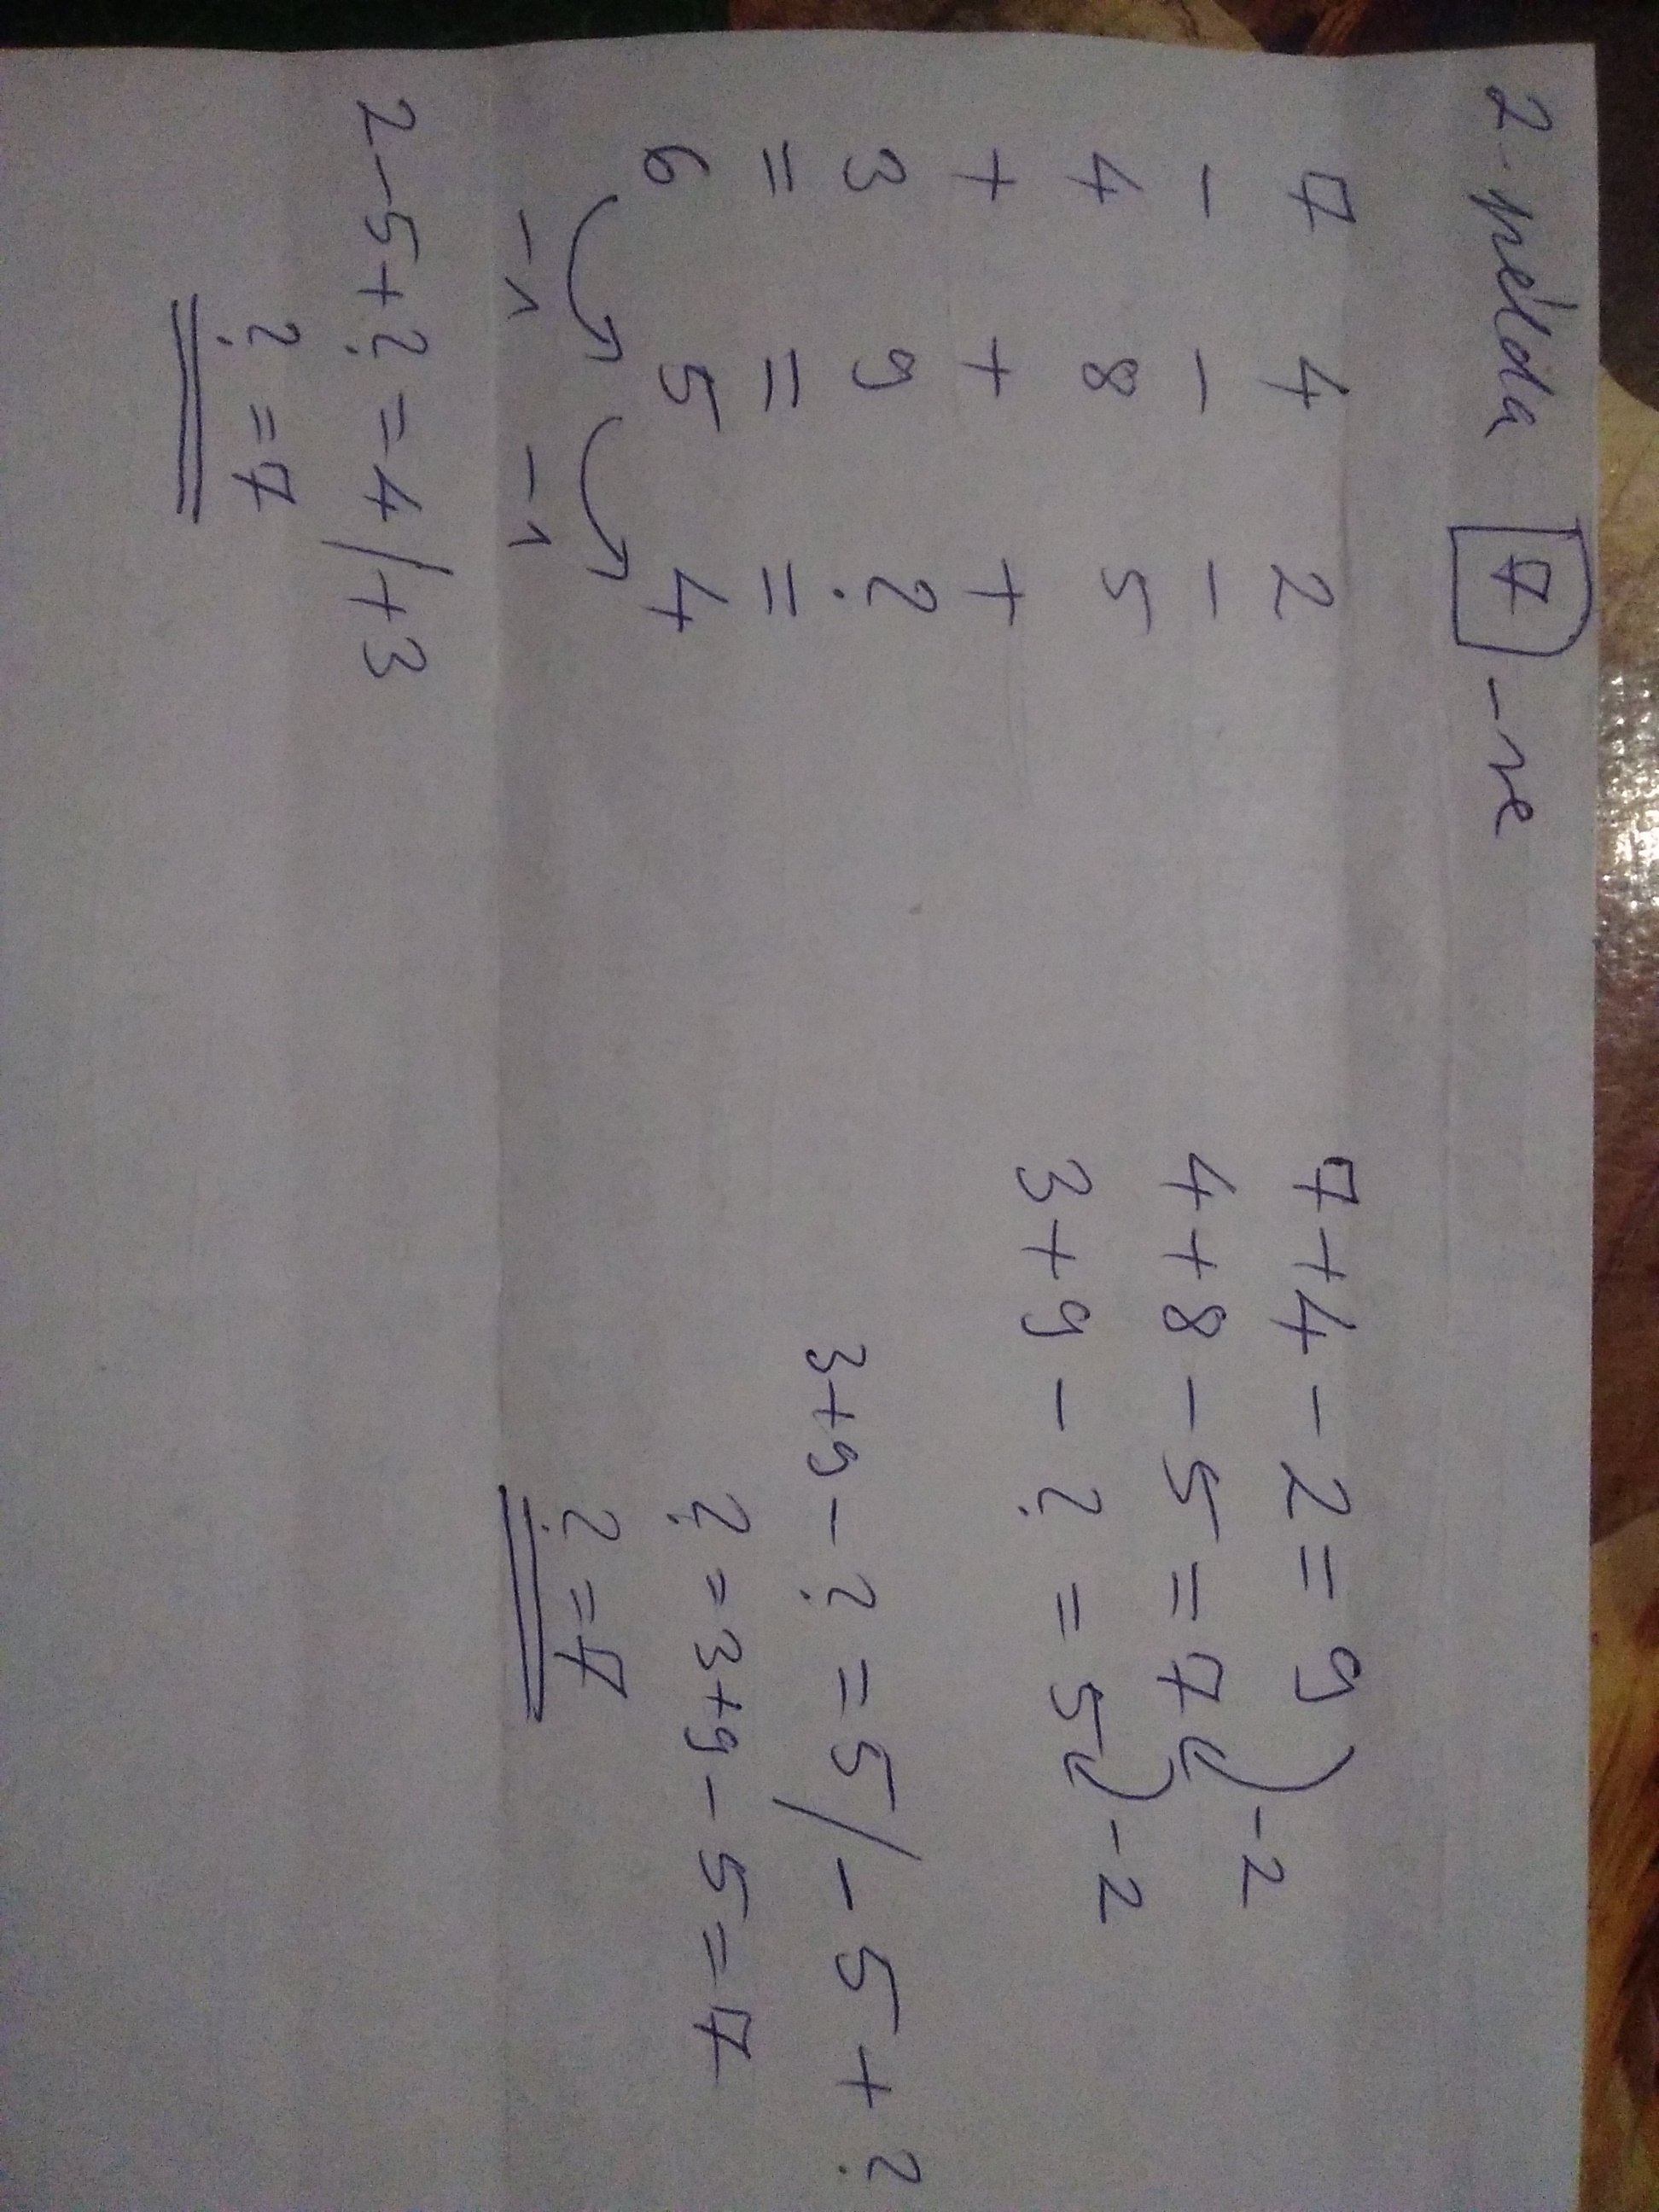 2 példa 7 -re
7 4 2
- - -
4 8 5
+ + +
3 9 ?
= = =
6 5 4
-1 -1
2-5+? = 4/+3
? = 7
7+4-2=9
-2
4+8-5=7
-2
3+9-?=5
3+9-?=5/-5+?
?=3+9-5=7
?=7